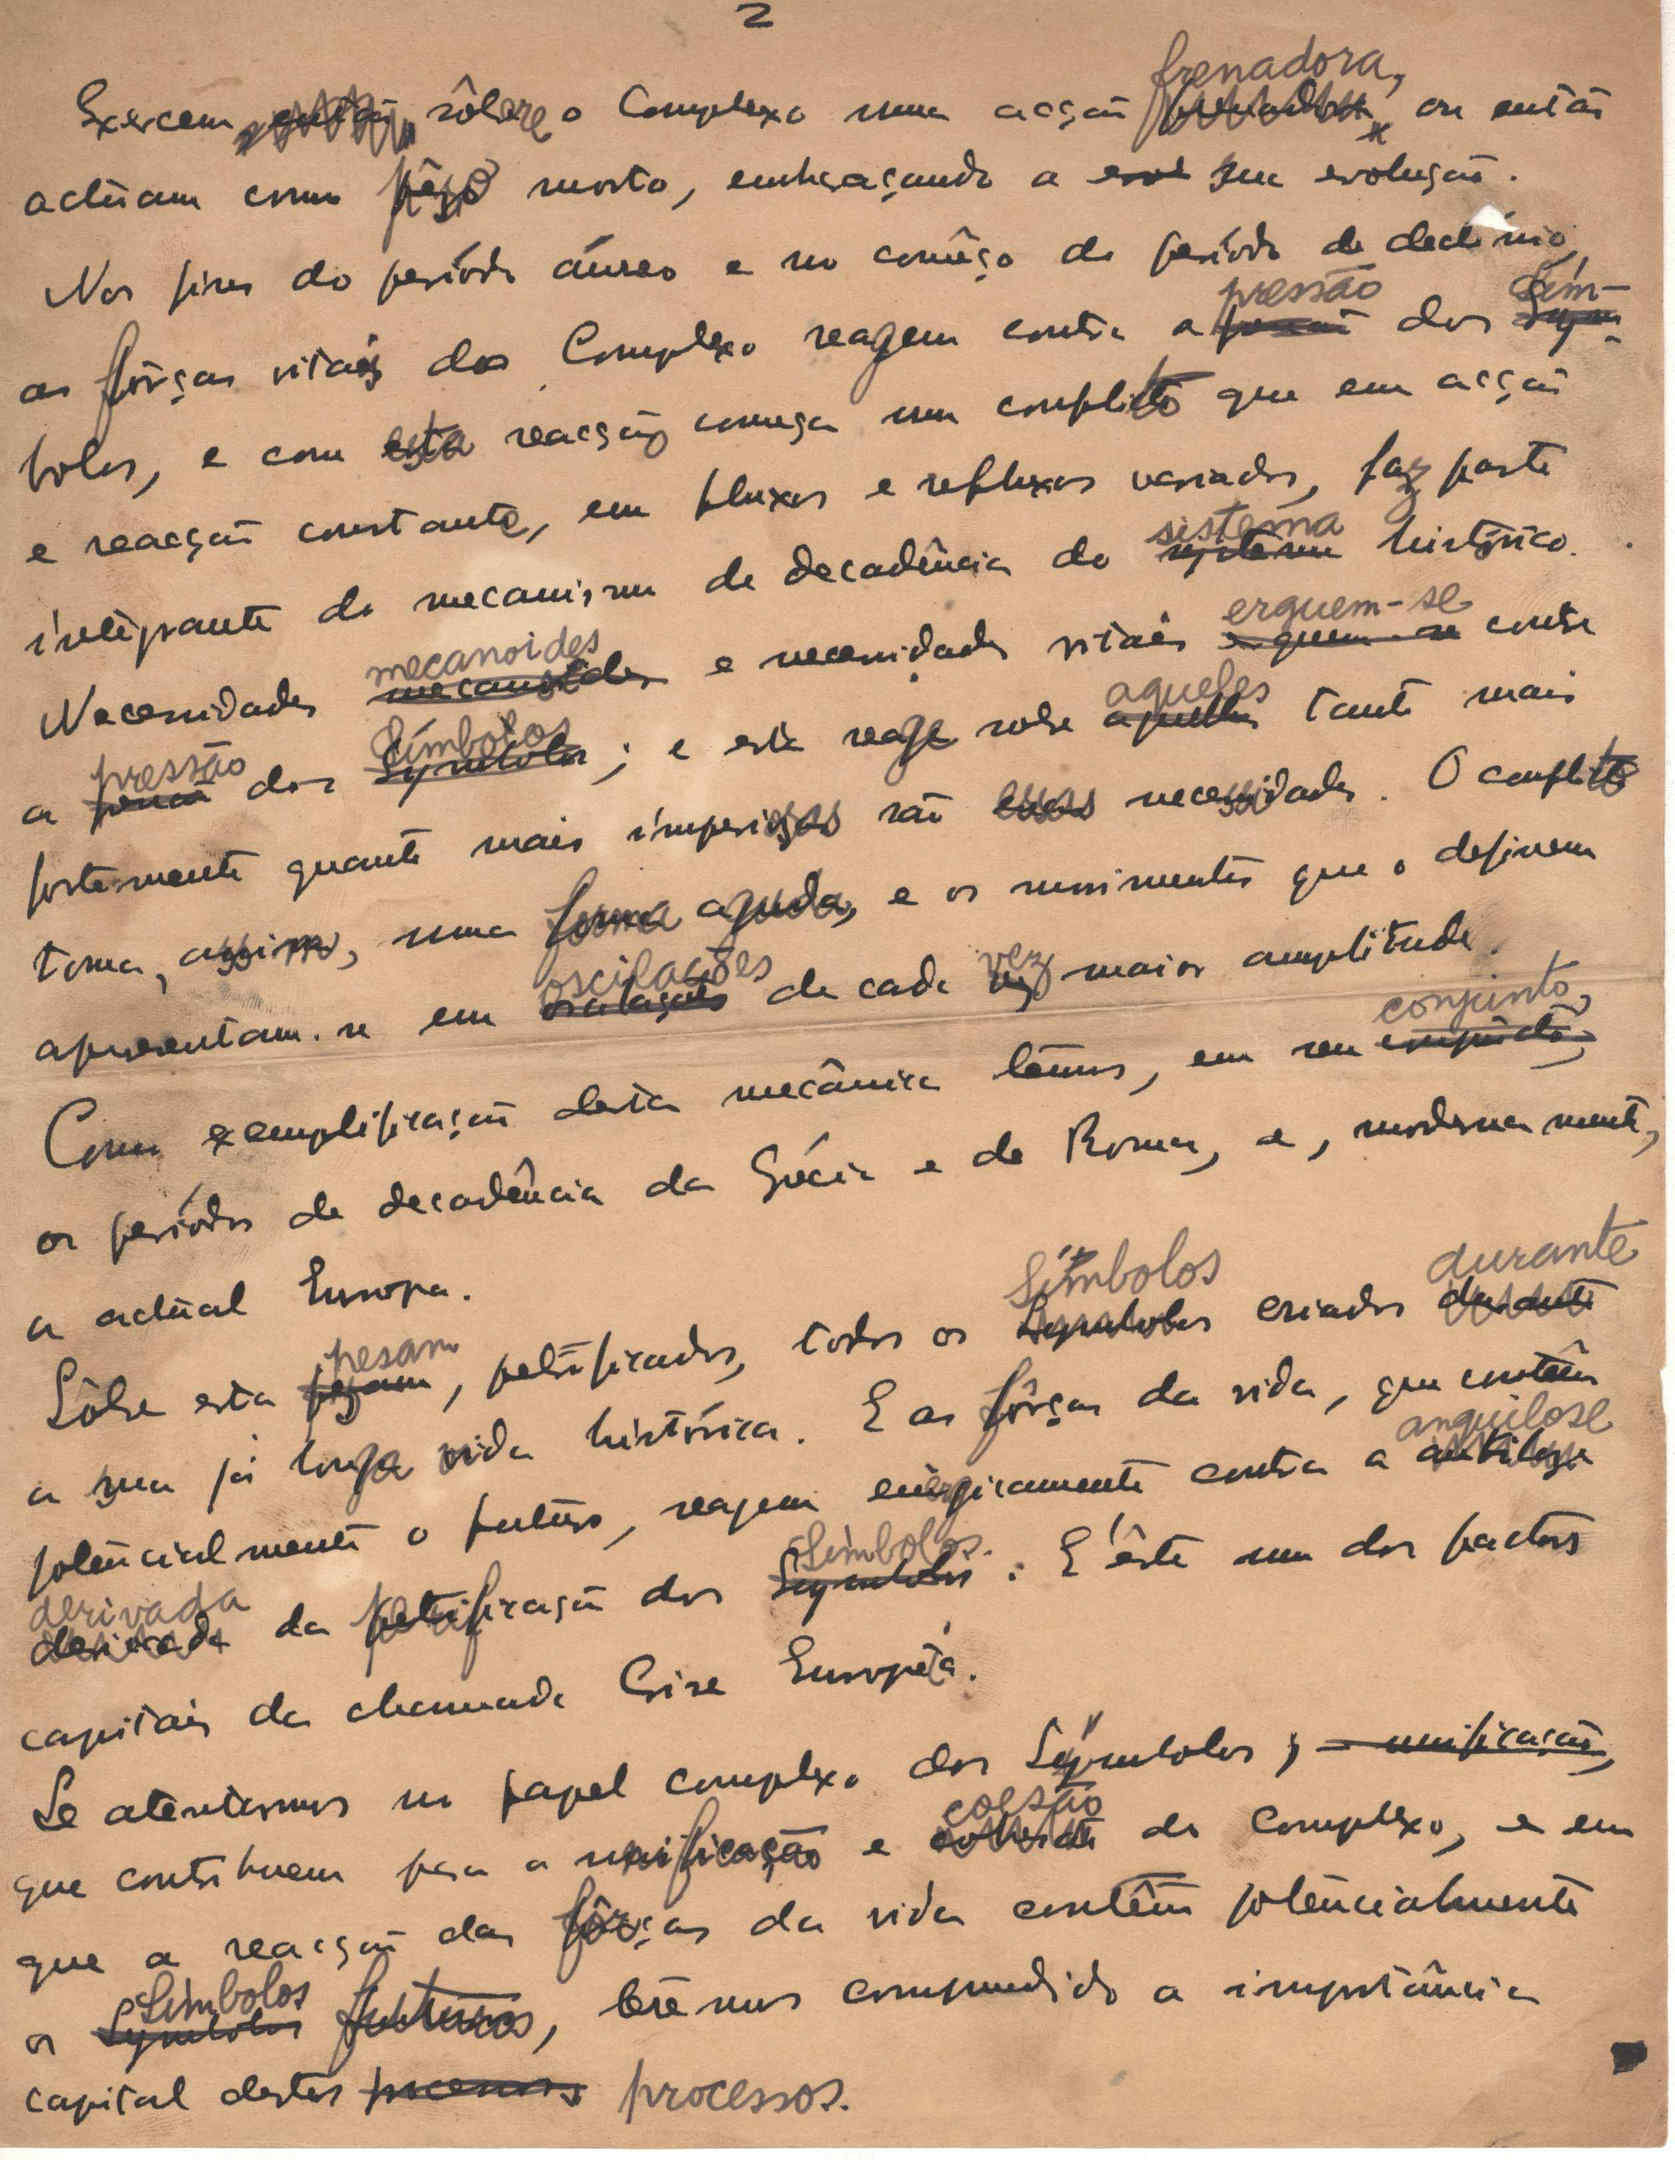 2
Exercem sôbre o Complexo uma acção frenadora, ou então
actúam como pêso morto, embaraçando a sua evolução.
Nos fins do período áureo e no comêço do período de declínio,
as fôrças vitais do Complexo reagem contra a pressão dos Sím-
bolos, e com esta reacção começa um conflito que em acção
e reacção constante, em fluxos e refluxos variados, faz parte
integrante do mecanismo de decadência do sistema histórico.
Necessidades mecanoides e necessidades vitais erguem-se contra
a pressão dos Símbolos; e esta reage sobre aqueles tanto mais
fortemente quanto mais imperiosas são essas necessidades. O conflito
toma, assim, uma forma aguda, e os movimentos que o definem
apresentam-se em oscilações de cada vez maior amplitude.
Como exemplificação desta mecânica temos, em seu conjunto,
os períodos de decadência da Grécia e de Roma, e, modernamente,
a actual Europa.
Sôbre esta pesam, petrificados, todos os Símbolos criados durante
a sua já longa vida histórica. E as fôrças da vida, que contêm
potencialmente o futuro, reagem enèrgicamente contra a anquilose
derivada da petrificação dos Símbolos. E' êste um dos factores
capitais da chamada Crise Europeia.
Se atentarmos no papel complexo dos Símbolos,
que contribuem para a unificação e coesão do Complexo, e em
que a reacção das fôrças da vida contêm potencialmente
os Símbolos futuros, teremos compreendido a importância
capital destes processos.